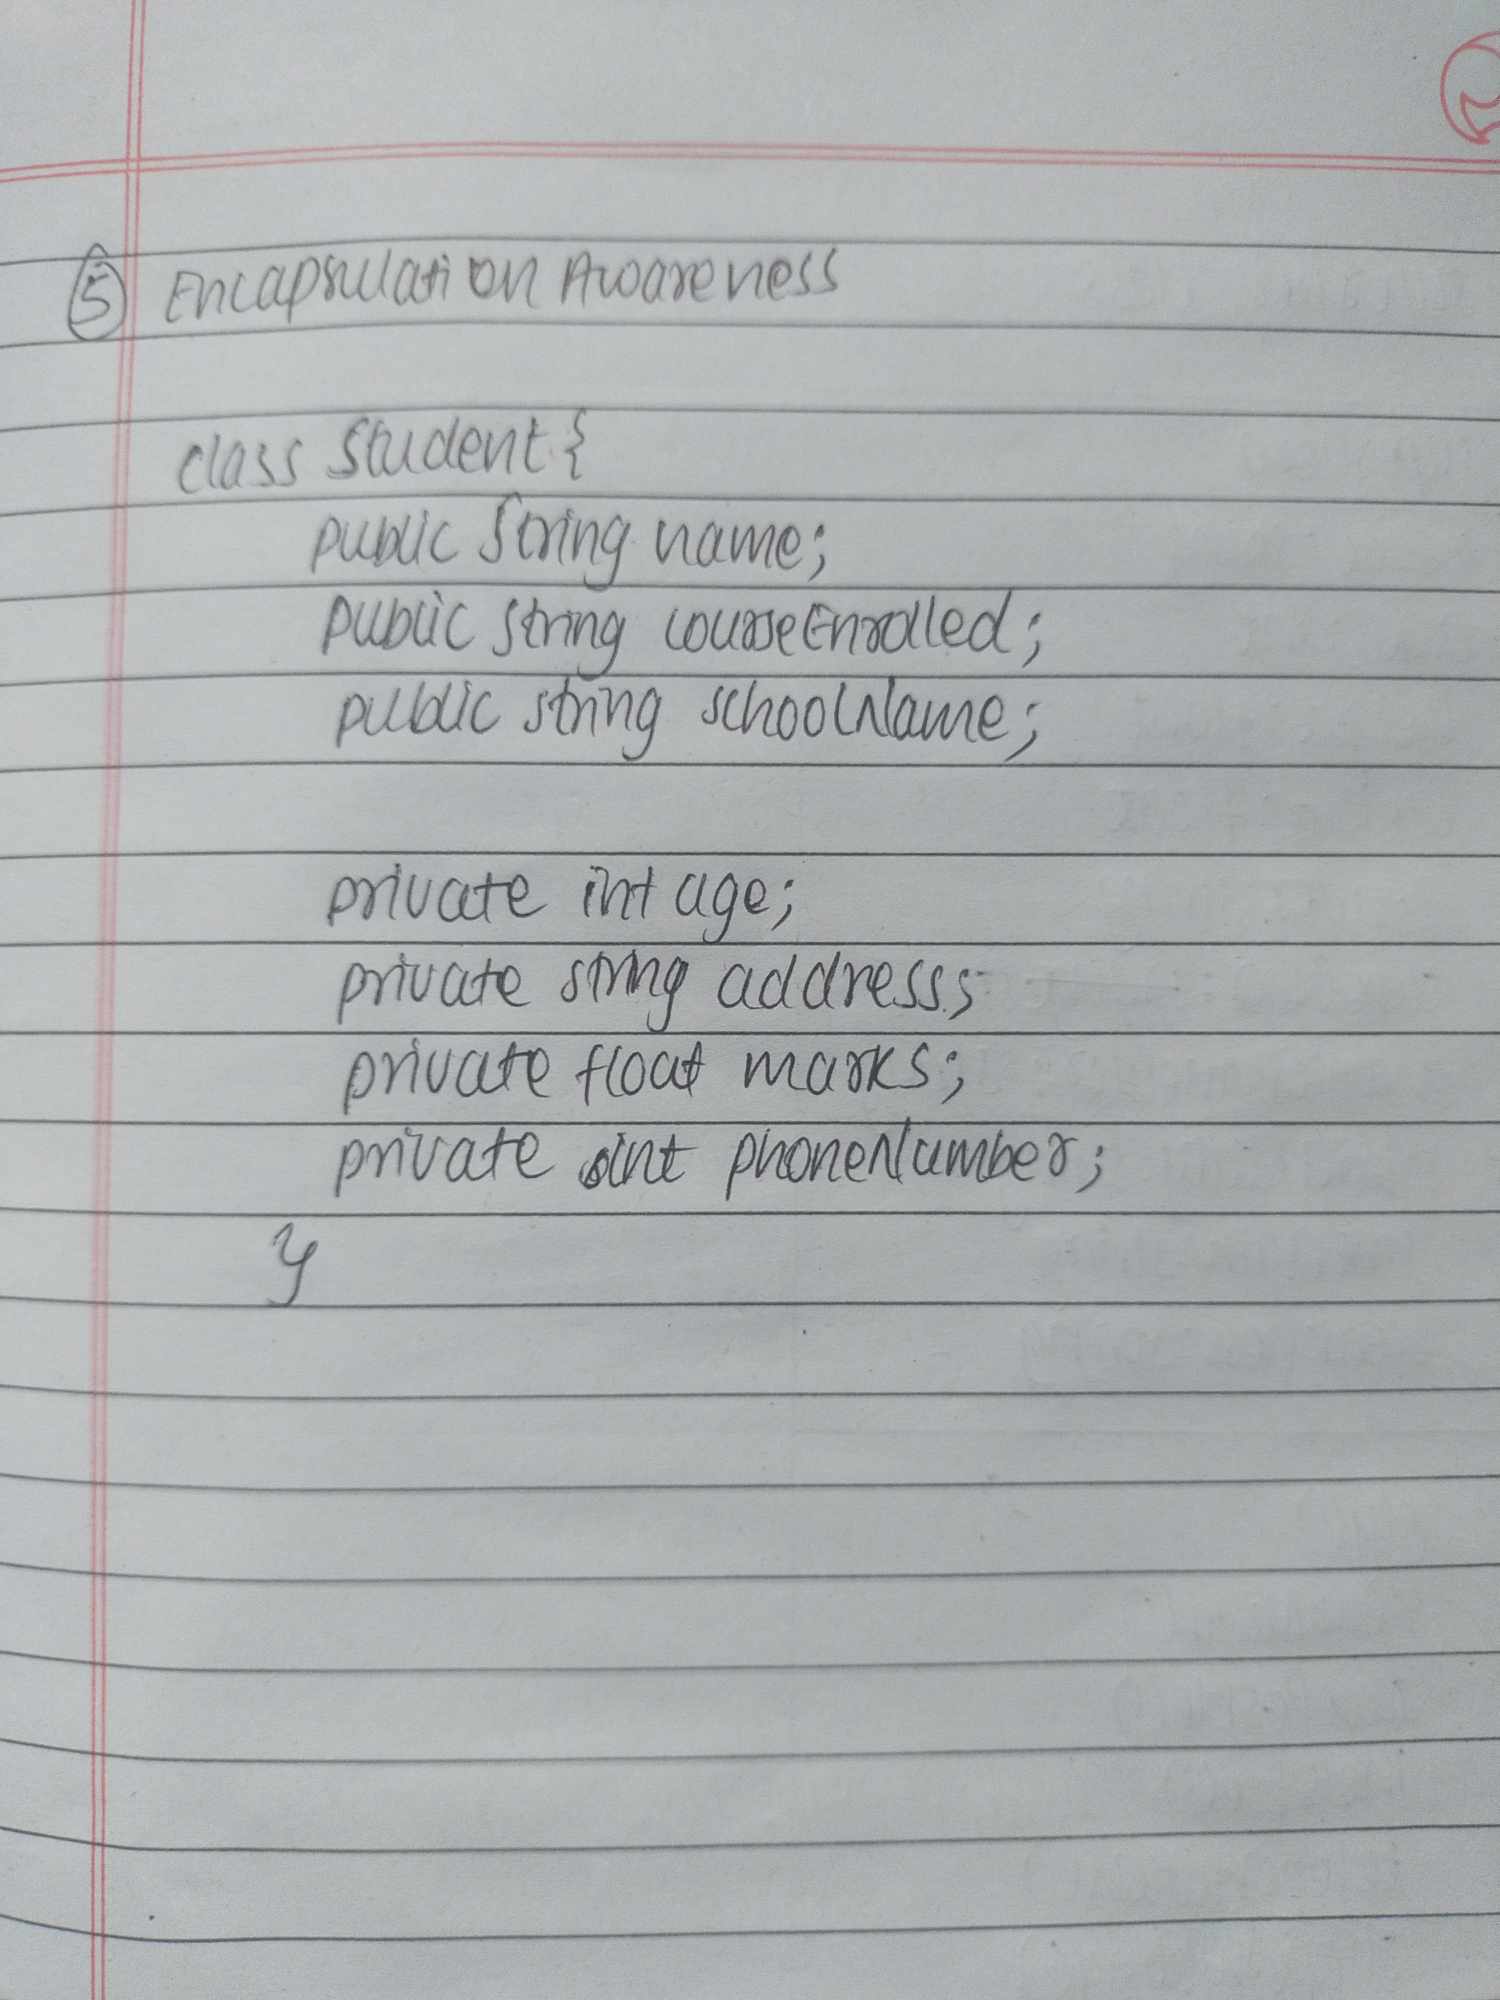 5 Encapsulation Awareness
class Student {
public String name;
public string courseEnrolled;
public string schoolName;
private int age;
private string address;
private float marks;
private int phoneNumber;
}